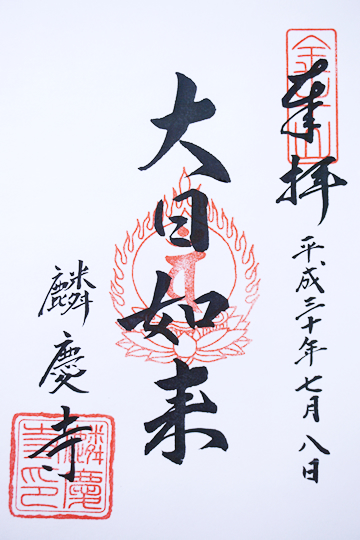 奉拝
平成三十年七月八日
大日如来
麟慶寺
麟慶
寺印